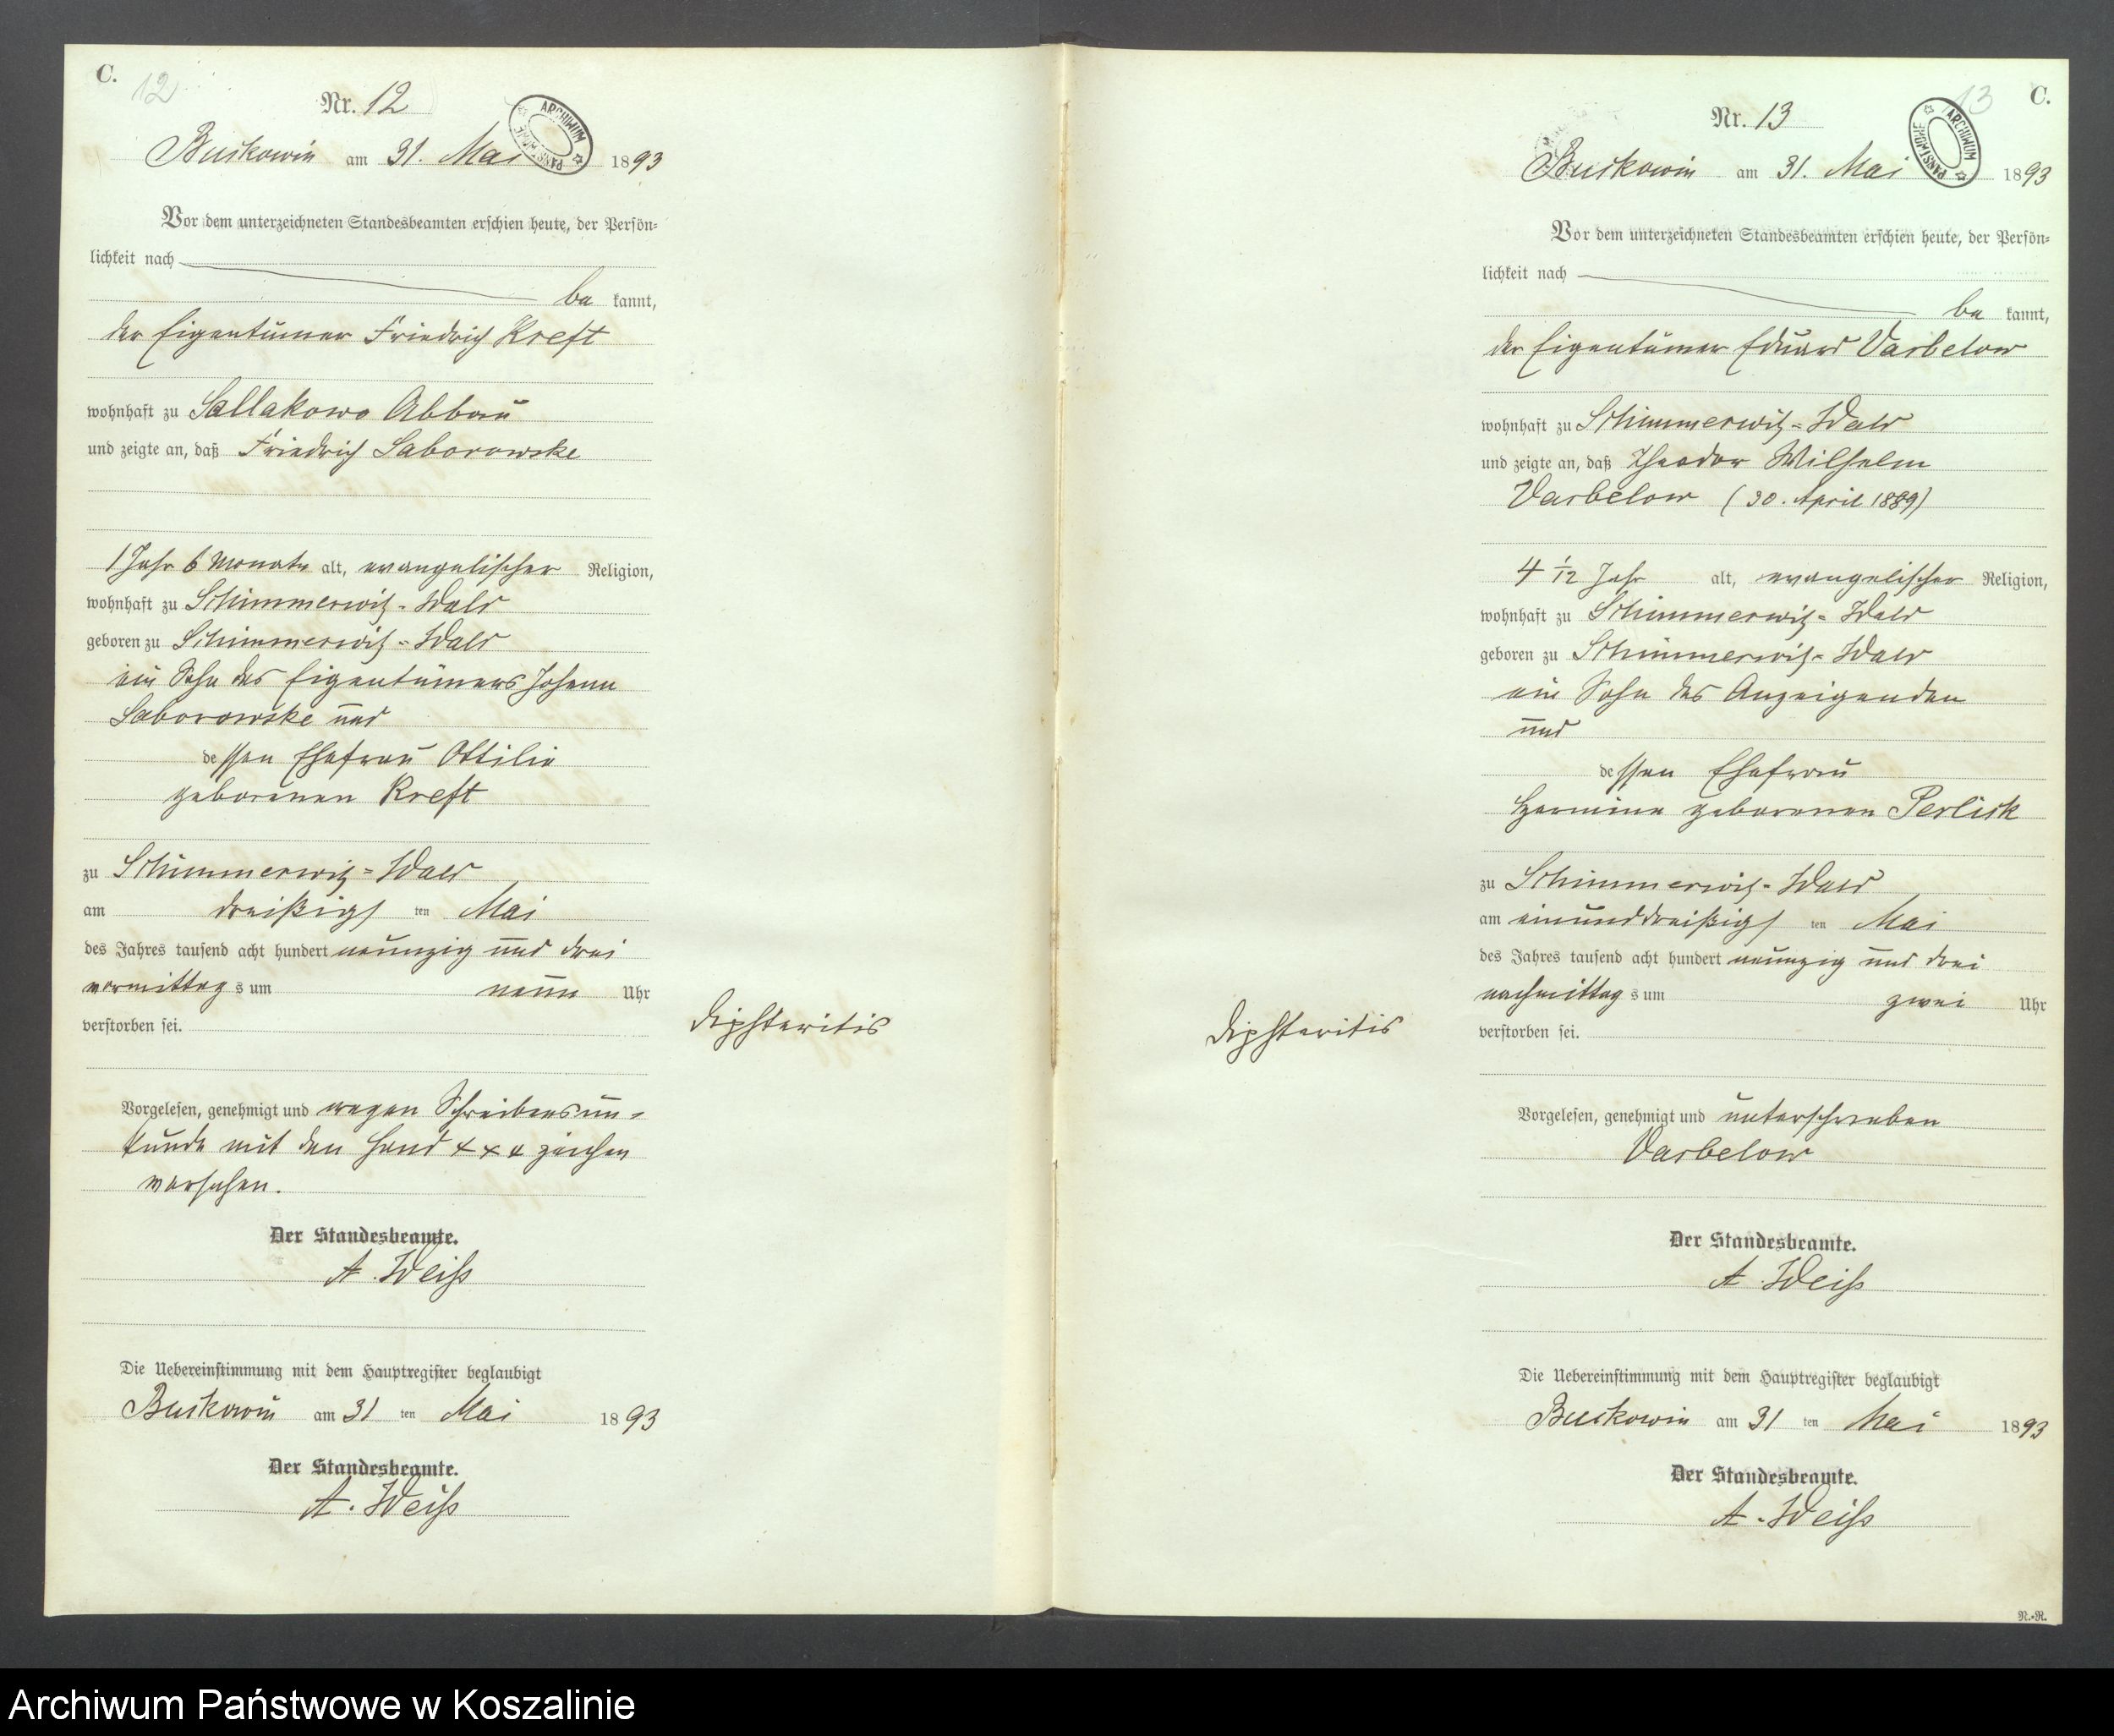 C.
12
Nr. 12
ARCHIWUM PAŃSTWOWE
Buckowin am 31. Mai 1893
Vor dem unterzeichneten Standesbeamten erschien heute, der Persön-
lichkeit nach
be kannt,
der Eigentümer Friedrich Kreft
wohnhaft zu Sallakowo Abbau
und zeigte an, daß Friedrich Saborowske
1 Jahr 6 Monate alt, evangelischer Religion,
wohnhaft zu Schimmerwitz-Wald
geboren zu Schimmerwitz-Wald
ein Sohn des Eigentümers Johann
Saborowske und
dessen Ehefrau Ottilie
geborenen Kreft
zu Schimmerwitz-Wald
am dreißigs ten Mai
des Jahres tausend acht hundert neunzig und drei
vormittags um neun Uhr
verstorben sei.
Diphteritis
Vorgelesen, genehmigt und wegen Schreibensun-
kunde mit den Hand xxx zeichen
versehen.
Der Standesbeamte.
A. Weiß
Die Uebereinstimmung mit dem Hauptregister beglaubigt
Buckowin am 31 ten Mai 1893
Der Standesbeamte.
A. Weiß
13
C.
Nr. 13
ARCHIWUM PAŃSTWOWE
Buckowin am 31. Mai 1893
Vor dem unterzeichneten Standesbeamten erschien heute, der Persön-
lichkeit nach
be kannt,
der Eigentümer Eduard Varbelow
wohnhaft zu Schimmerwitz-Wald
und zeigte an, daß Theodor Wilhelm
Varbelow (30. April 1889)
4 1/12 Jahr alt, evangelischer Religion,
wohnhaft zu Schimmerwitz-Wald
geboren zu Schimmerwitz-Wald
ein Sohn des Anzeigenden
und
dessen Ehefrau
Hermine geborenen Perlick
zu Schimmerwitz-Wald
am einunddreißigs ten Mai
des Jahres tausend acht hundert neunzig und drei
nachmittags um zwei Uhr
verstorben sei.
Diphteritis
Vorgelesen, genehmigt und unterschrieben
Varbelow
Der Standesbeamte.
A. Weiß
Die Uebereinstimmung mit dem Hauptregister beglaubigt
Buckowin am 31 ten Mai 1893
Der Standesbeamte.
A. Weiß
N.-R.
Archiwum Państwowe w Koszalinie